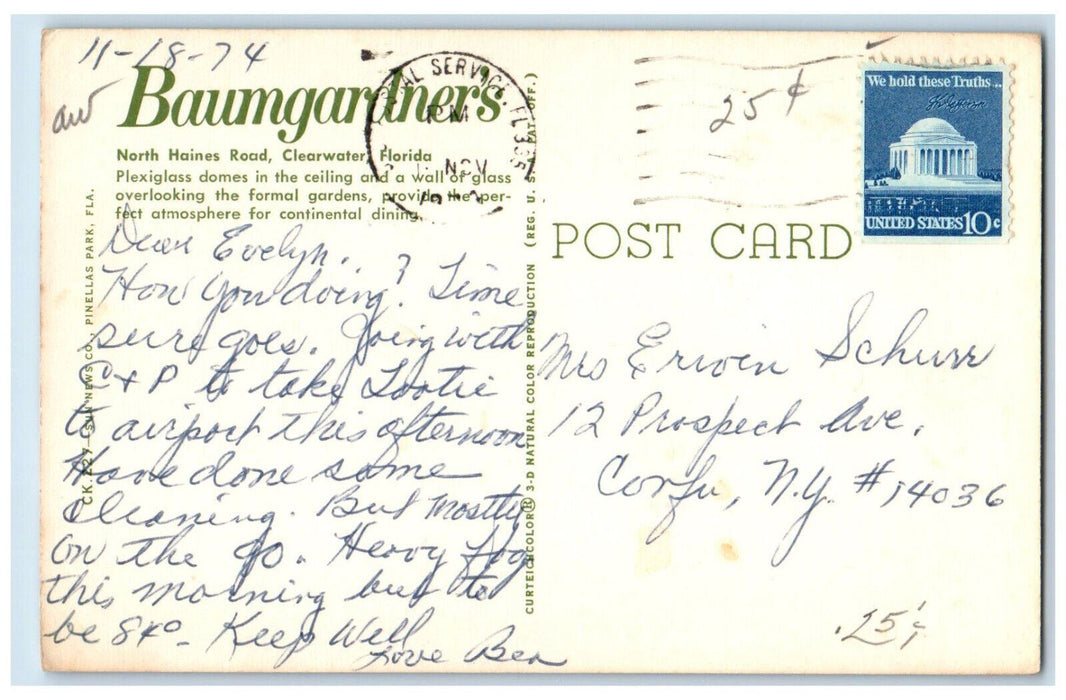 11-18-74
Baumgartners
North Haines Road, Clearwater, Florida
Plexiglass domes in the ceiling and a wall of glass
overlooking the formal gardens, provide the per-
fect atmosphere for continental dining.
Dear Evelyn.
How you doing? Time
sure goes. Going with
C+P to take Lootie
to airport this afternoon
Have done some
cleaning. But mostly
on the go. Heavy fog
this morning but to
be 84° - Keep Well
Love Bea
SUN NEWS CO., PINELLAS PARK, FLA.
CURTEICHCOLOR® 3-D NATURAL COLOR REPRODUCTION (REG. U. S. PAT. OFF.)
SERVICE, FL 335
PM
NOV
25¢
We hold these Truths...
UNITED STATES 10c
POST CARD
Mrs Erwin Schurr
12 Prospect Ave.
Corfu, N.Y. # 14036
.25¢